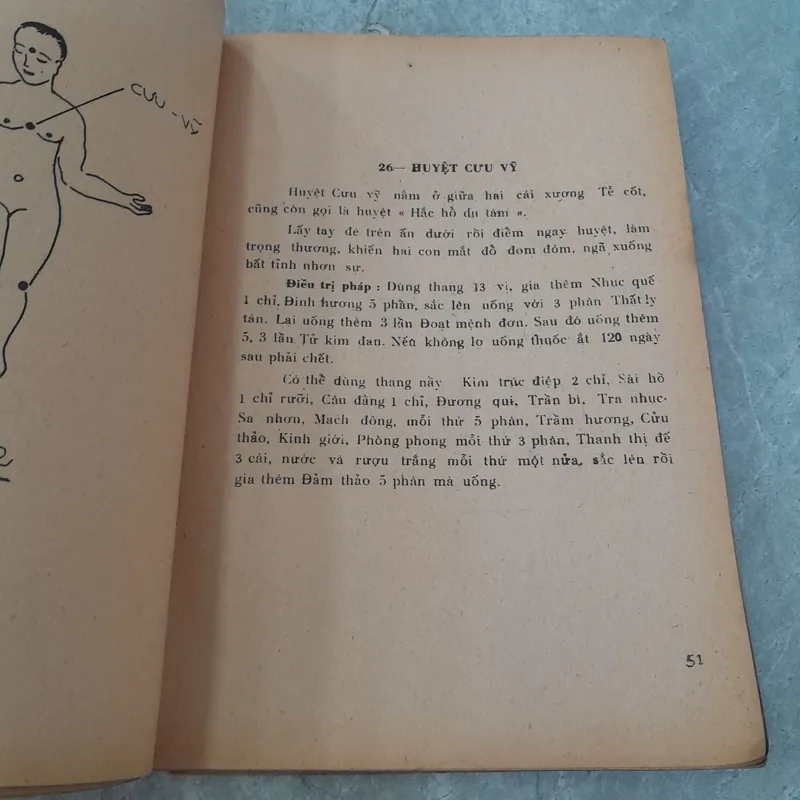 CƯU - VỸ
26— HUYỆT CƯU VỸ
Huyệt Cưu vỹ nằm ở giữa hai cái xương Tề cốt,
cũng còn gọi là huyệt « Hắc hổ du tâm ».
Lấy tay đè trên ấn dưới rồi điểm ngay huyệt, làm
trọng thương, khiến hai con mắt đỏ đom đóm, ngã xuống
bất tỉnh nhơn sự.
Điều trị pháp : Dùng thang 13 vị, gia thêm Nhục quế
1 chỉ, Đinh hương 5 phần, sắc lên uống với 3 phân Thất ly
tán. Lại uống thêm 3 lần Đoạt mệnh đơn. Sau đó uống thêm
5, 3 lần Tử kim đan. Nếu không lo uống thuốc ắt 120 ngày
sau phải chết.
Có thể dùng thang nầy Kim trúc điệp 2 chỉ, Sài hồ
1 chỉ rưỡi, Câu đằng 1 chỉ, Đương qui, Trần bì, Tra nhục.
Sa nhơn, Mạch đông, mỗi thứ 5 phân, Trầm hương, Cửu
thảo, Kinh giới, Phòng phong mỗi thứ 3 phân, Thanh thị đế
3 cái, nước và rượu trắng mỗi thứ một nửa, sắc lên rồi
gia thêm Đảm thảo 5 phân mà uống.
51